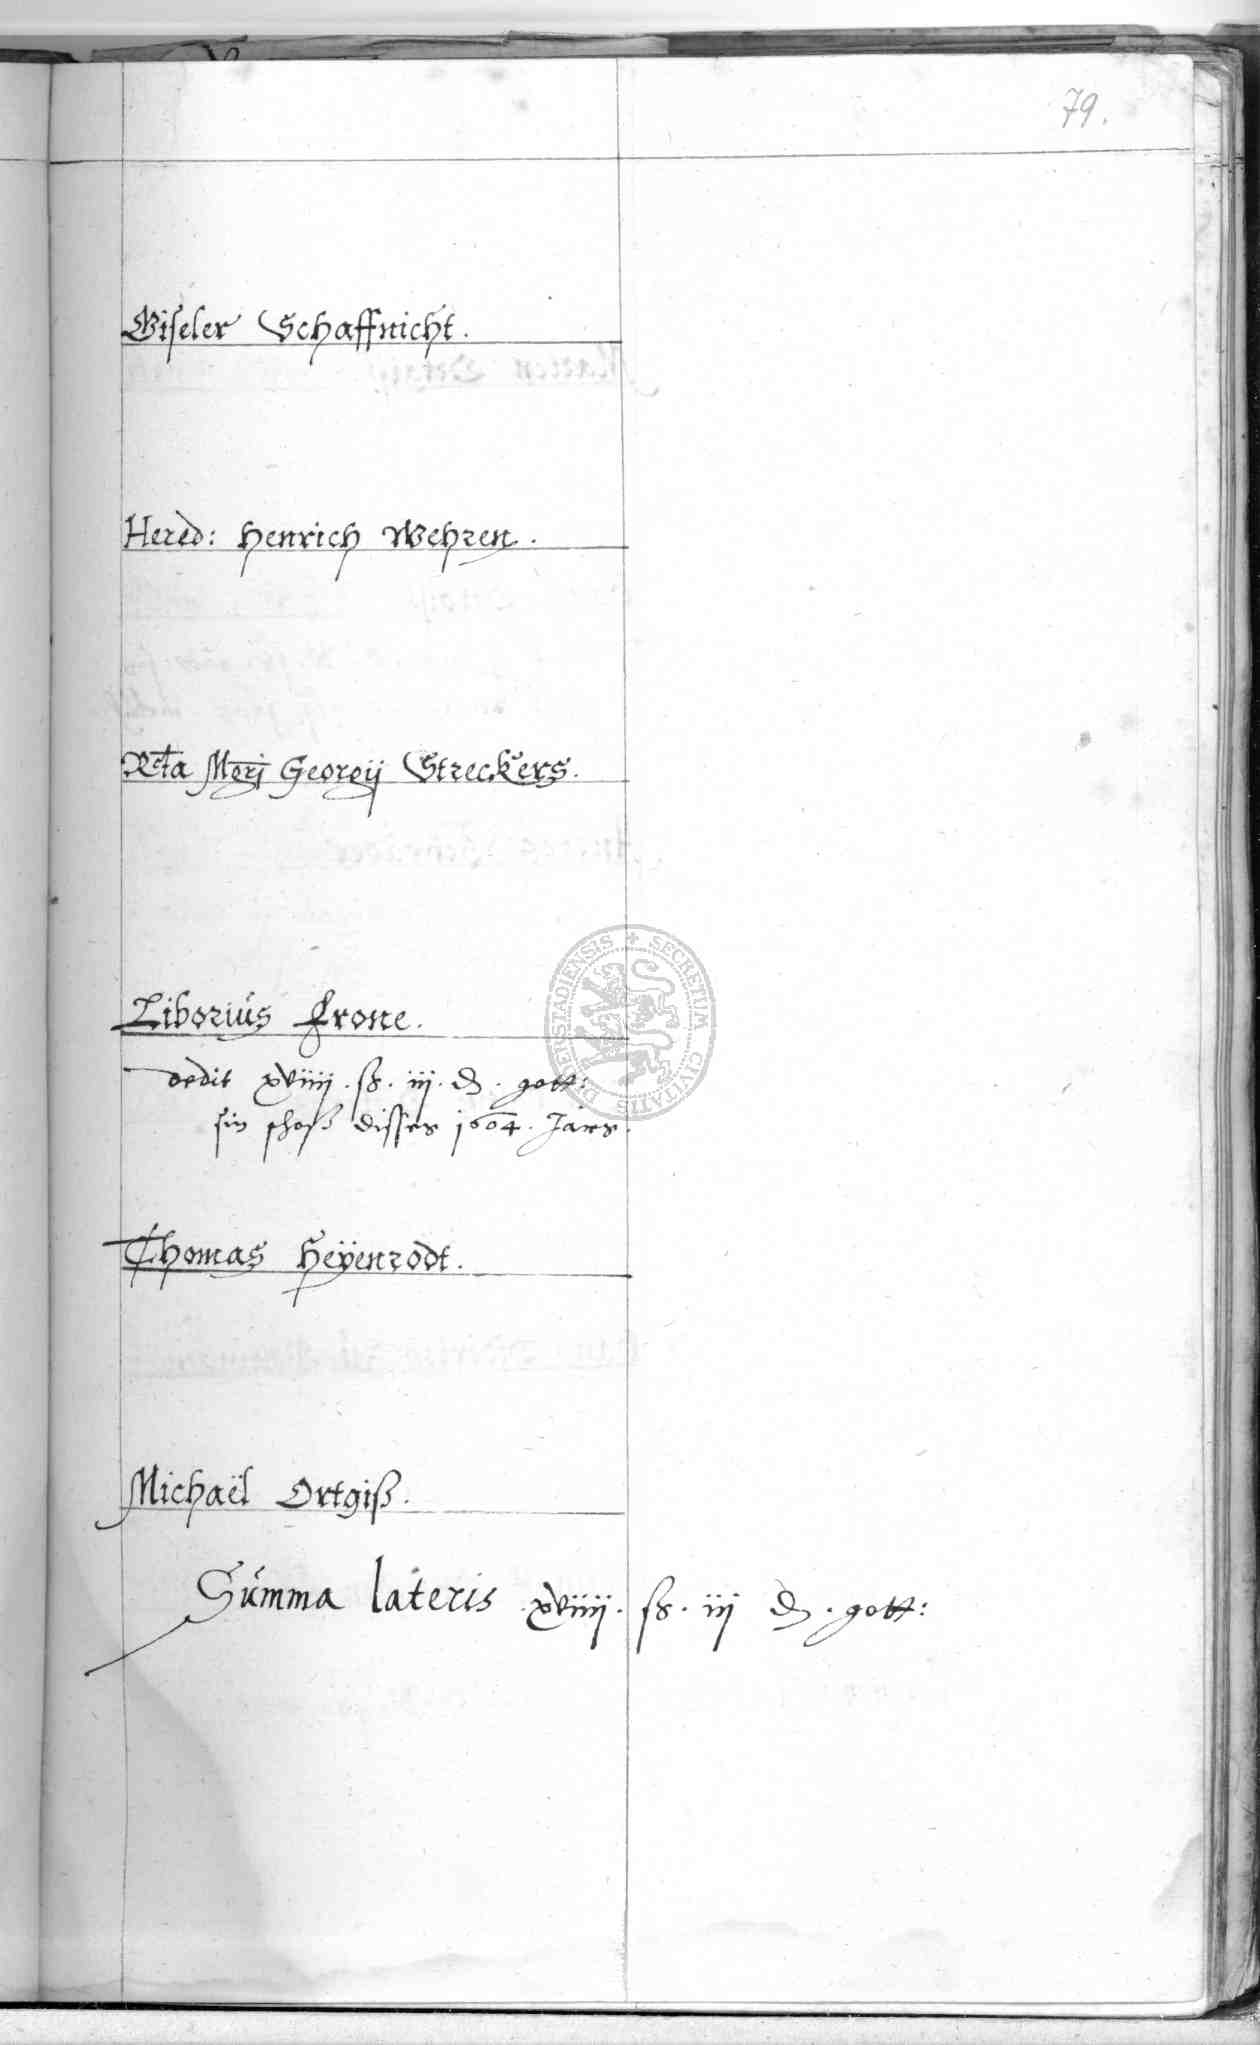 79.
Giseler Schaffnicht.
Hered: Henrich Wehren.
Rcta Mgrj Georgij Streckers.
Liborius Crone.
dedit xviiij. ß. iij. d. gott:
sin schoß disses 1604. Jars.
Thomas Heÿenrodt.
Michaël Ortgiß.
Summa lateris xviiij. ß. iij d. gott:
SECRETUM CIVITATIS DUDERSTADIENSIS